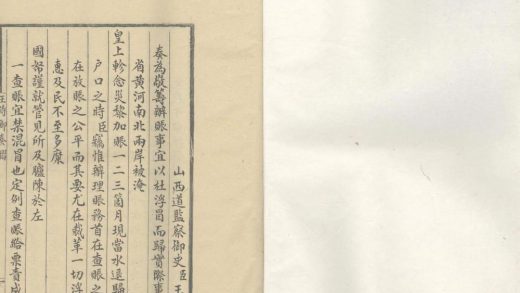 山西道監察御史臣王
奏為敬籌辦賑事宜以杜浮冒而歸實際事
省黃河南北兩岸被淹
皇上軫念災黎加賑一二三箇月現當水退歸
戶口之時臣竊惟辦理賑務首在查賑之
在放賑之公平而其要尤在裁革一切浮
惠及民不至多糜
國帑謹就管見所及臚陳於左
一查賑宜禁混冒也定例查賑給票責成
王侍御奏